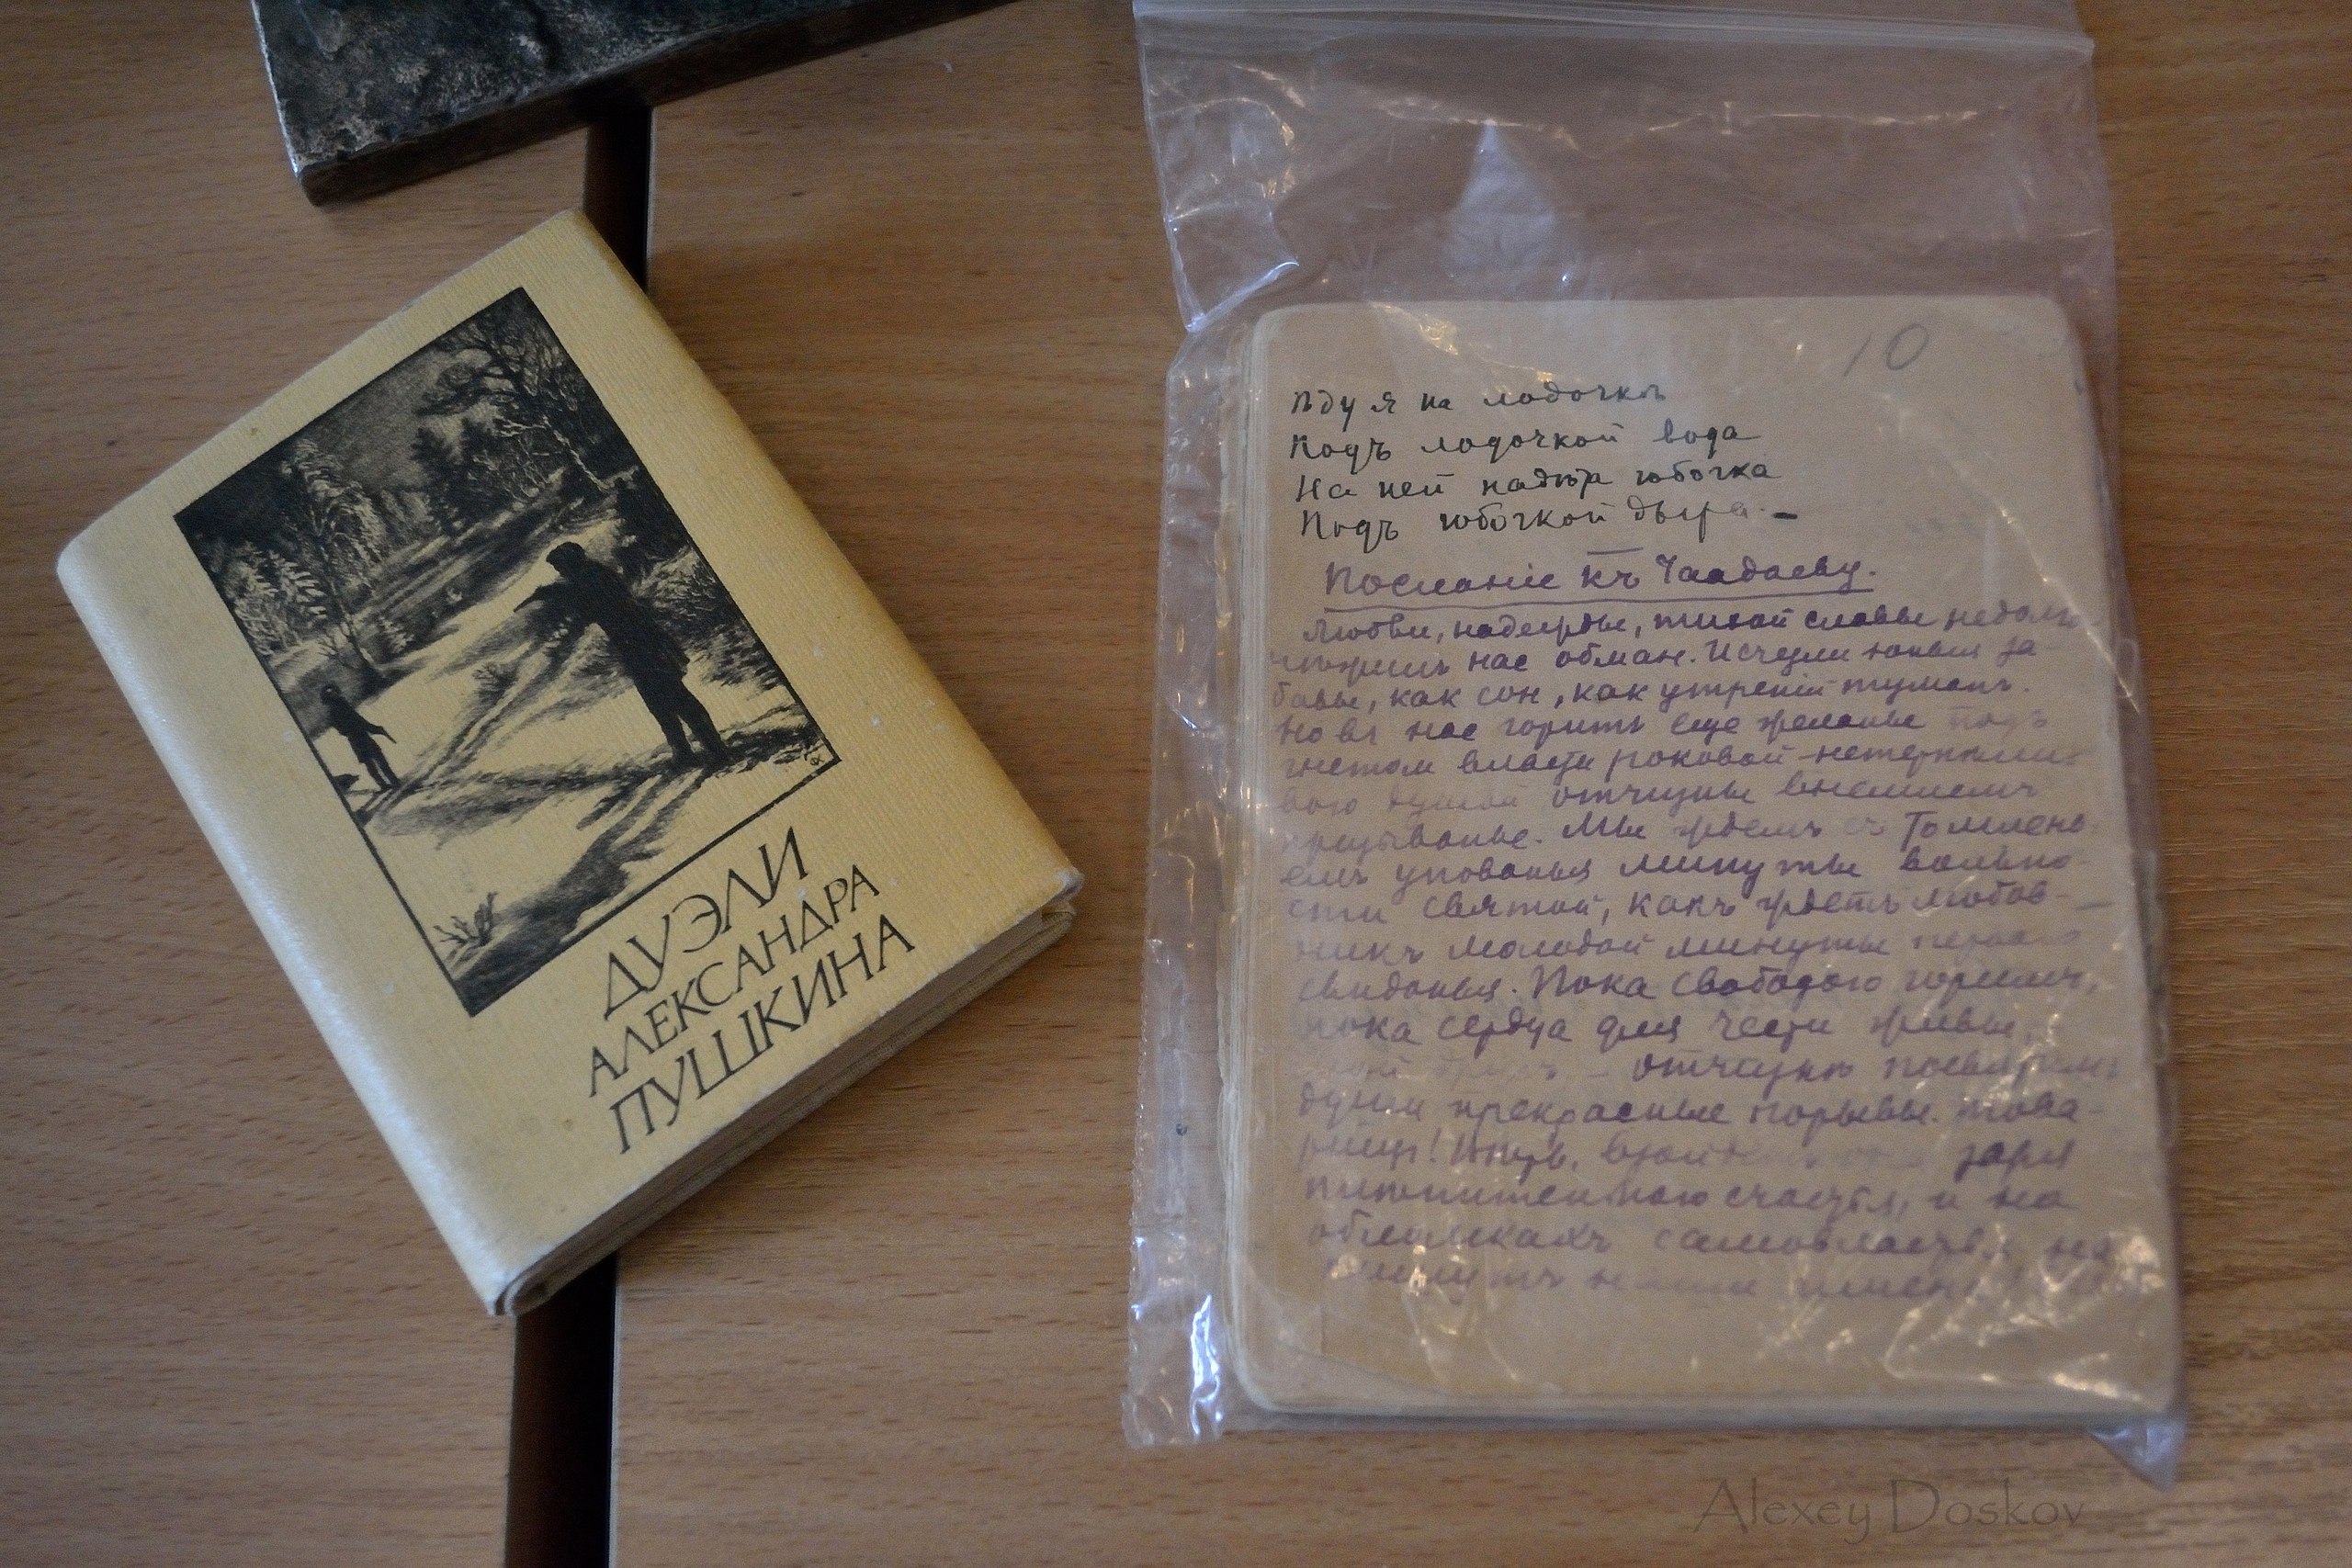 ДУЭЛИ
АЛЕКСАНДРА
ПУШКИНА
10
ѣду я на лодочкѣ
Подъ лодочкой вода
На ней надѣта юбочка
Подъ юбочкой дыра. –
Посланіе къ Чаадаеву.
Любви, надежды, тихой славы недолго
нас обман. Исчезли юныя за-
бавы, как сон, как утреній туманъ.
Но въ нас горитъ еще желанье подъ
гнетом власти роковой нетерпели-
вою душой отчизны внемлемъ
призыванье. Мы ждемъ съ томлень-
емъ упованья минуты вольно-
сти святой, какъ ждетъ любов-
никъ молодой минуты первого
свиданья. Пока свободою горимъ,
пока сердца для чести живы,
отчизнѣ посвятимъ
души прекрасные порывы. Това-
рищъ! Вѣрь, взойдетъ она заря
пленительного счастья, и на
обломкахъ самовластья на-
пишутъ наши имена!
Alexey Doskov